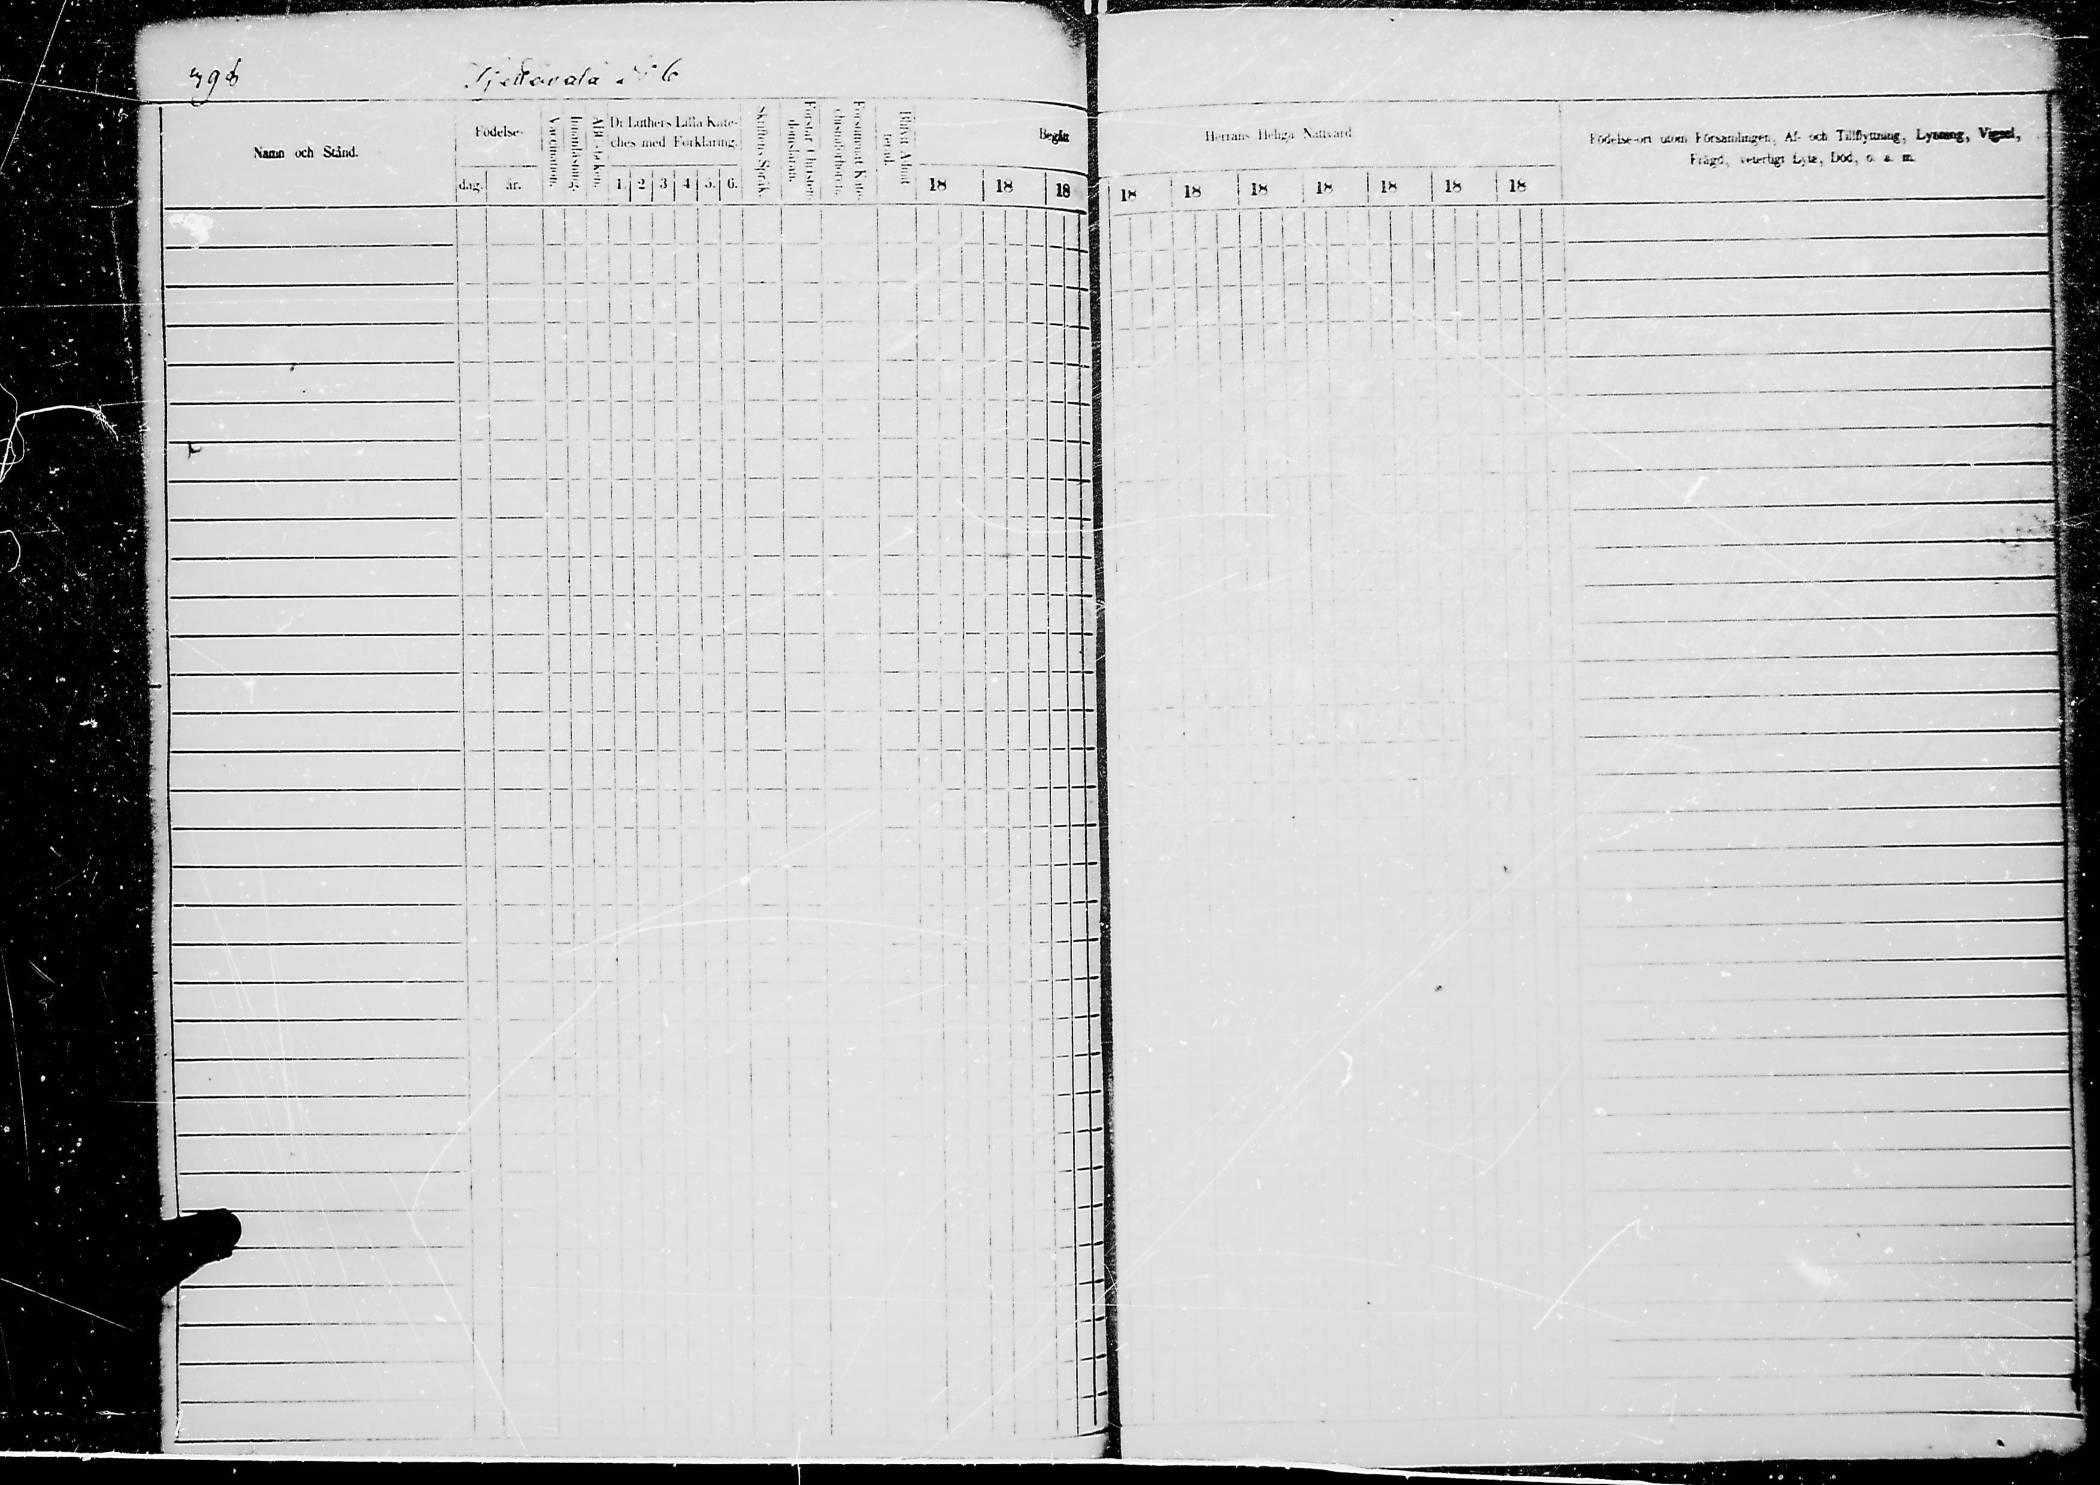 Namn och Stånd.
Födelse-
dag.
år.
Vaccinationen.
Innanläsning.
ABC-boken.
Dr Luthers Lilla Kate-
ches med Förklaring.
1. 2 3 4 5. 6.
Skriftens Språk.
Förstår Christen-
domsläran.
Försummat Kate-
chismiförhör.
Blifvit Admit-
terad.
Begått
18 18 18
Herrans Heliga Nattvard
18 18 18 18 18 18 18
Födelse-ort utom Församlingen, Af- och Tillflyttning, Lysning, Vigsel,
Frägd, veterligt Lyte, Död, o. s. m.